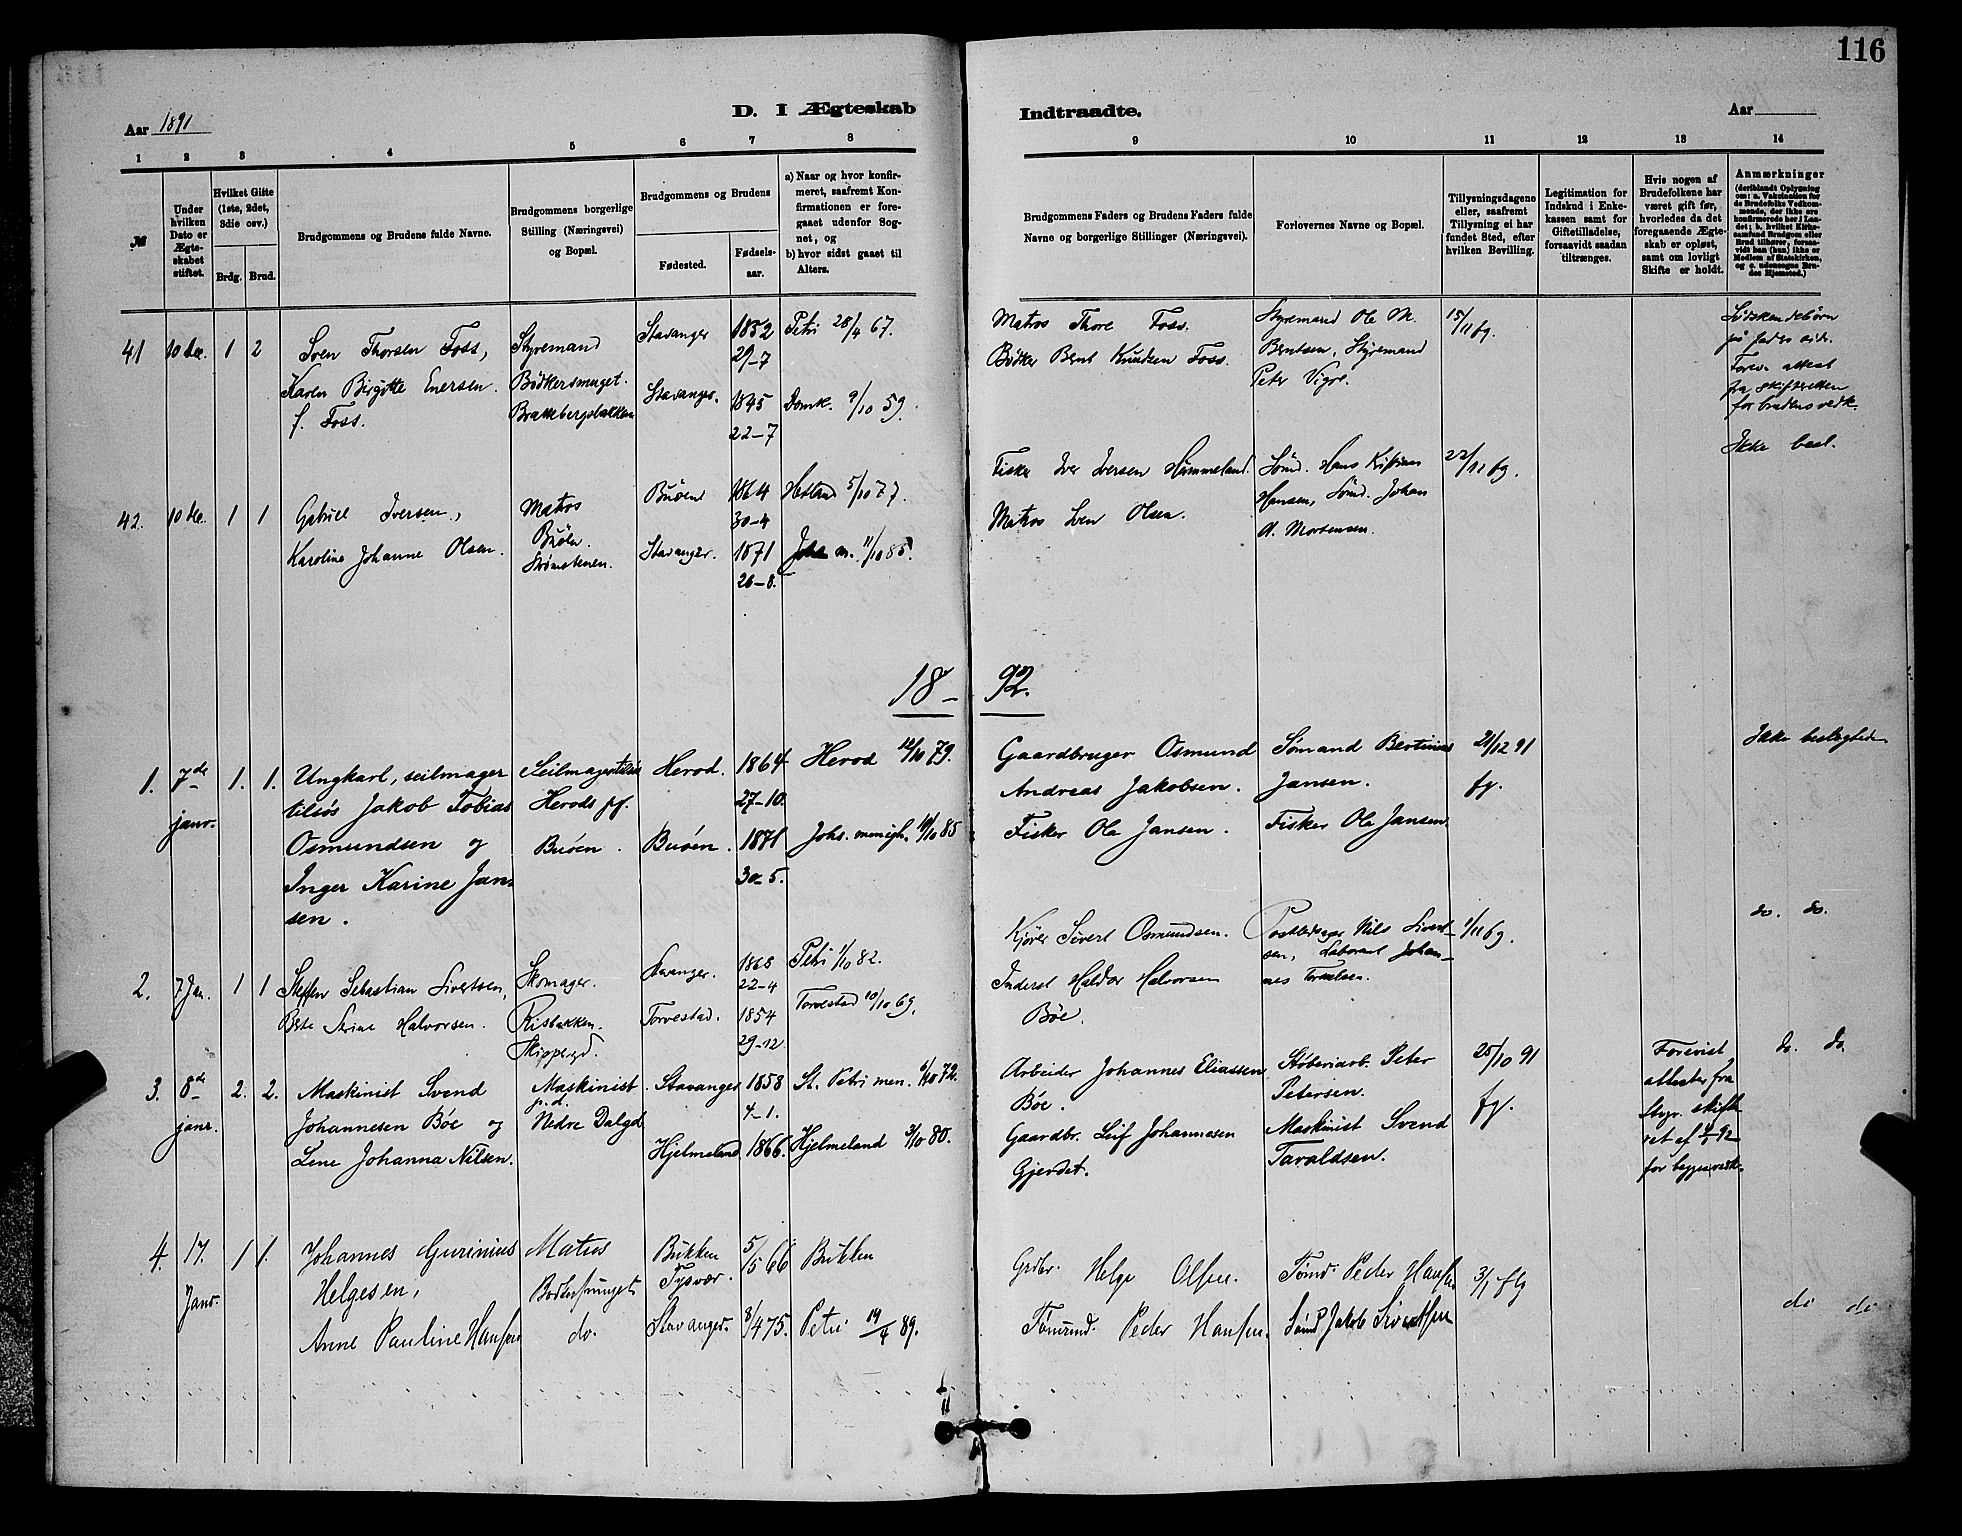 116
Aar 1891
D. I Ægteskab
Indtraadte.
Aar
1 2 3 4 5 6 7 8
9 10 11 12 13 14
№
Under
hvilken
Dato er
Ægte-
skabet
stiftet.
Hvilket Gifte
(1ste, 2det,
3die osv.)
Brdg. Brud.
Brudgommens og Brudens fulde Navne.
Brudgommens borgerlige
Stilling (Næringsvei)
og Bopæl.
Brudgommens og Brudens
Fødested.
Fødsels-
aar.
a) Naar og hvor konfir-
meret, saafremt Kon-
firmationen er fore-
gaaet udenfor Sog-
net, og
b) hvor sidst gaaet til
Alters.
Brudgommens Faders og Brudens Faders fulde
Navne og borgerlige Stillinger (Næringsvei).
Forlovernes Navne og Bopæl.
Tillysningsdagene
eller, saafremt
Tillysning ei har
fundet Sted, efter
hvilken Bevilling.
Legitimation for
Indskud i Enke-
kassen samt for
Giftetilladelse,
forsaavidt saadan
tiltrænges.
Hvis nogen af
Brudefolkene har
været gift før,
hvorledes da det
foregaaende Ægte-
skab er opløst,
samt om lovligt
Skifte er holdt.
Anmærkninger
(deriblandt Oplysning
om: a. Vakcination for
de Brudefolks Vedkom-
mende, der ikke ere
konfirmerede her i Lan-
det; b. hvilket Kirke-
samfund Brudgom eller
Brud tilhører, forsaa-
vidt han (hun) ikke er
Medlem af Statskirken,
og c. udensogns Bru-
des Hjemsted.)
41 10 dec. 1 2
Sven Thorsen Foss,
Karen Birgitte Enersen
f. Foss.
Styremand
Bödkersmuget.
Brattebergsbakken
Stavanger
Stavanger.
1852
29-7
1845
22-7
Petri 28/4 67.
Domk. 9/10 59.
Matros Thore Foss.
Bødker Bent Knudsen Foss.
Styremand Ole M.
Berntsen, Styremand
Peter Vigre.
15/11 fg.
Södskendebörn
på faders side.
Forev. attest
fra skifteretten
for brudens vedk.
42. 10 dec. 1 1
Gabriel Iversen,
Karoline Johanne Olsen.
Matros
Buöen.
Strömstenen.
Buöen
Stavanger.
1864
30-4
1871
26-8.
Hetland 5/10 77.
Joh. m. 11/10 85.
Fisker Iver Iversen Hummeland.
Matros Sven Olsen.
Sömd. Hans Kristian
Hansen, Sömd. Johan
A. Mortensen.
22/11 fg.
Ikke besl.
18-92.
1. 7de janr. 1. 1.
Ungkarl, seilmager
tilsös Jakob Tobias
Osmundsen og
Inger Karine Jan-
sen.
Seilmager tilsös
Herods pf.
Buöen.
Herod.
Buöen.
1864
27-10.
1871
30-5.
Herod 12/10 79.
Johs. menigh. 11/10 85
Gaardbruger Osmund
Andreas Jakobsen.
Fisker Ole Jansen.
Sömand Bertinius
Jansen.
Fisker Ole Jansen.
21/12 91
fg.
Ikke beslegtede
2. 7 Jan. 1 1
Steffen Sebastian Sivertsen,
Berte Serine Halvorsen.
Skomager.
Risbakken.
Skippergd.
Stavanger.
Torvestad.
1868
22-4
1854
29-12
Petri 1/10 82.
Torvestad 10/10 69.
Kjører Sivert Osmundsen.
Inderst Haldor Halvorsen
Böe.
Postbetjent Nils Sivert-
sen, Laborant Johan-
nes Torkelsen.
1/11 fg.
do. do.
3. 8de janr. 2. 2.
Maskinist Svend
Johannesen Böe og
Lene Johanna Nilsen.
Maskinist
p.d.
Nedre Dalgd
Stavanger
Hjelmeland
1858
4-1.
1866.
St. Petri men. 6/10 72.
Hjelmeland 3/10 80.
Arbeider Johannes Eliassen
Böe.
Gaardbr. Leif Johannesen
Gjerdet.
Støberiarb. Peter
Petersen.
Maskinist Svend
Taraldsen.
25/10 91
fg.
Forevist
attester fra
Stgr. skifte
ret af 4/1 92
for begges vedk.
do. do.
4. 17. Janr. 1 1.
Johannes Gurinius
Helgesen,
Anne Pauline Hansen
Matros
Bødkersmuget
do.
Bukken
Tysvær.
Stavanger.
5/5 66
3/4 75.
Bukken
Petri 14/4 89.
Grdbr. Helge Olsen.
Tömmd. Peder Hansen.
Tömd. Peder Hansen
Sömd Jakob Sivertsen
3/1 flg
do do